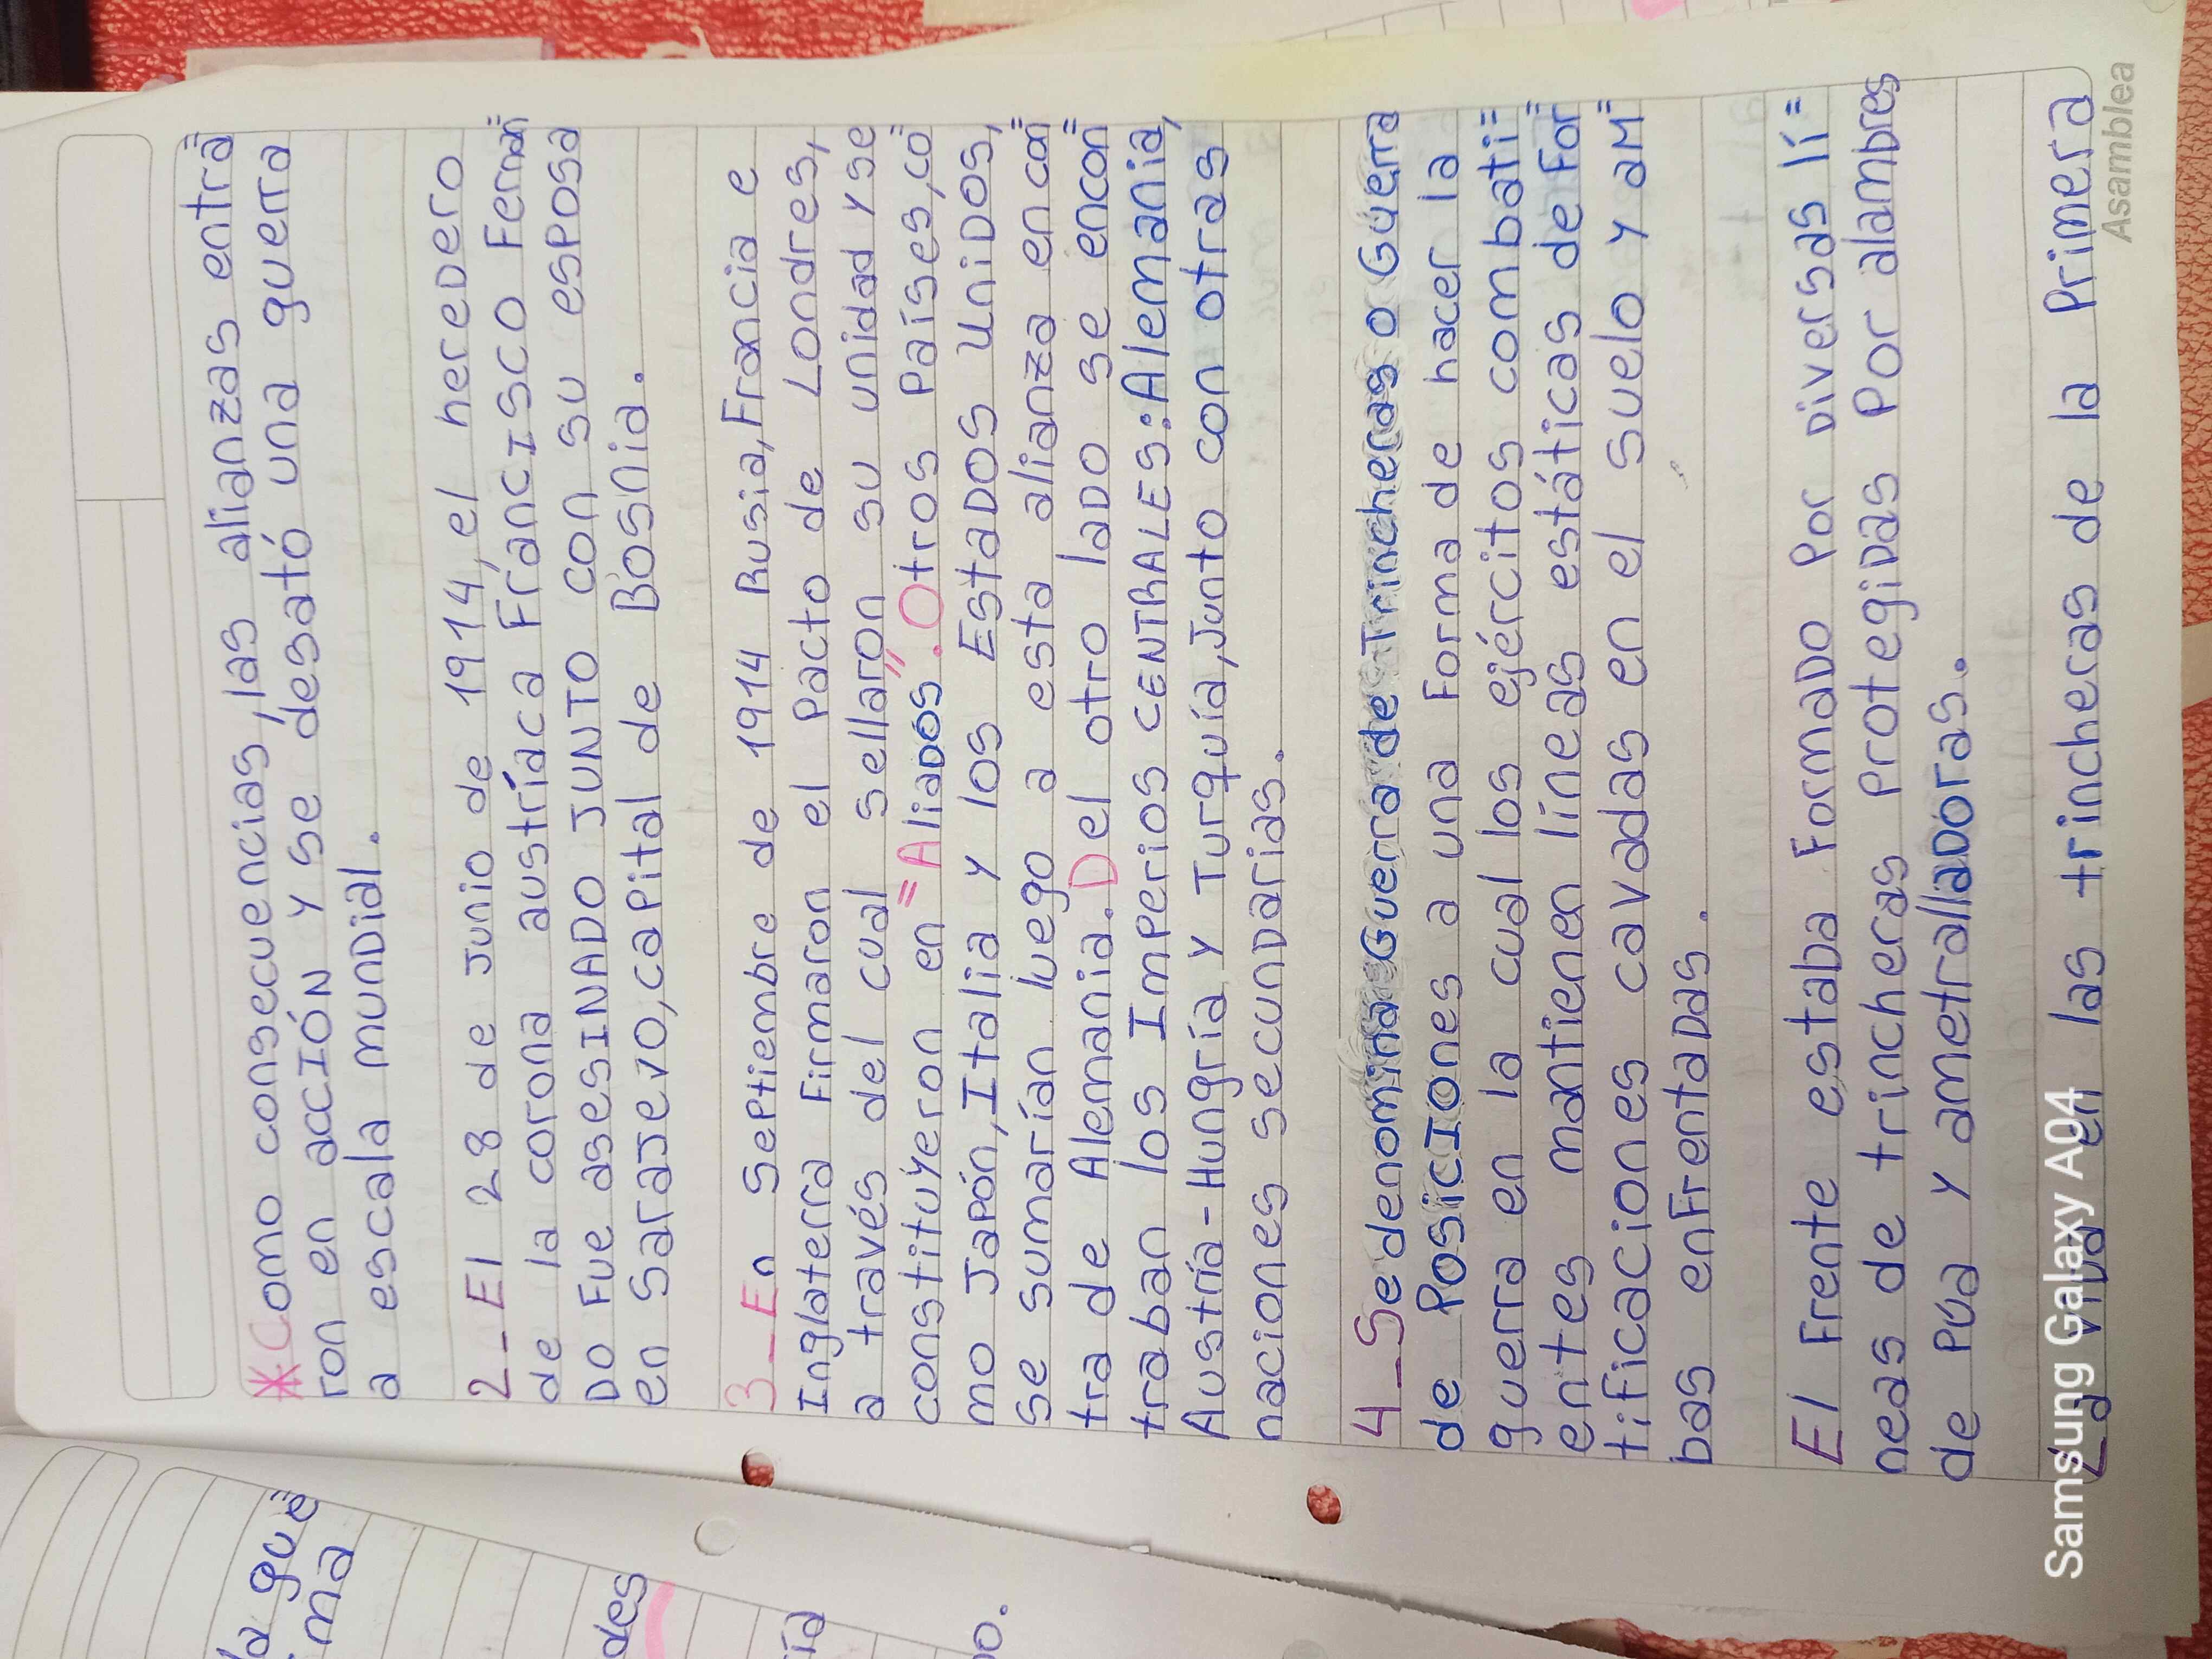 *Como consecuencias, las alianzas entra=
ron en acCIÓN y se desató una guerra
a escala mundial.
2_El 28 de Junio de 1914, el heredero
de la corona austríaca Francisco Fernan=
do Fue asesINADO JUNTO con su esposa
en Sarajevo, capital de Bosnia.
3_En Septiembre de 1914 Rusia, Francia e
Inglaterra Firmaron el Pacto de Londres,
a través del cual sellaron su unidad y se
constituyeron en "Aliados". Otros Países, co=
mo Japón, Italia y los Estados Unidos,
se sumarían luego a esta alianza en con=
tra de Alemania. Del otro lado se encon=
traban los Imperios CENTRALES: Alemania,
Austría-Hungría y Turquía, Junto con otras
naciones secundarias.
4_Se denomina Guerra de Trincheras o Guerra
de Posiciones a una Forma de hacer la
guerra en la cual los ejércitos combati=
entes mantienen líneas estáticas de For=
tificaciones cavadas en el suelo y am=
bas enfrentadas.
El Frente estaba Formado Por diversas lí=
neas de trincheras Protegidas Por alambres
de Púa y ametralladoras.
La vida en las trincheras de la Primera
Asamblea
Samsung Galaxy A04
la gue=
ma
des
ía
o.